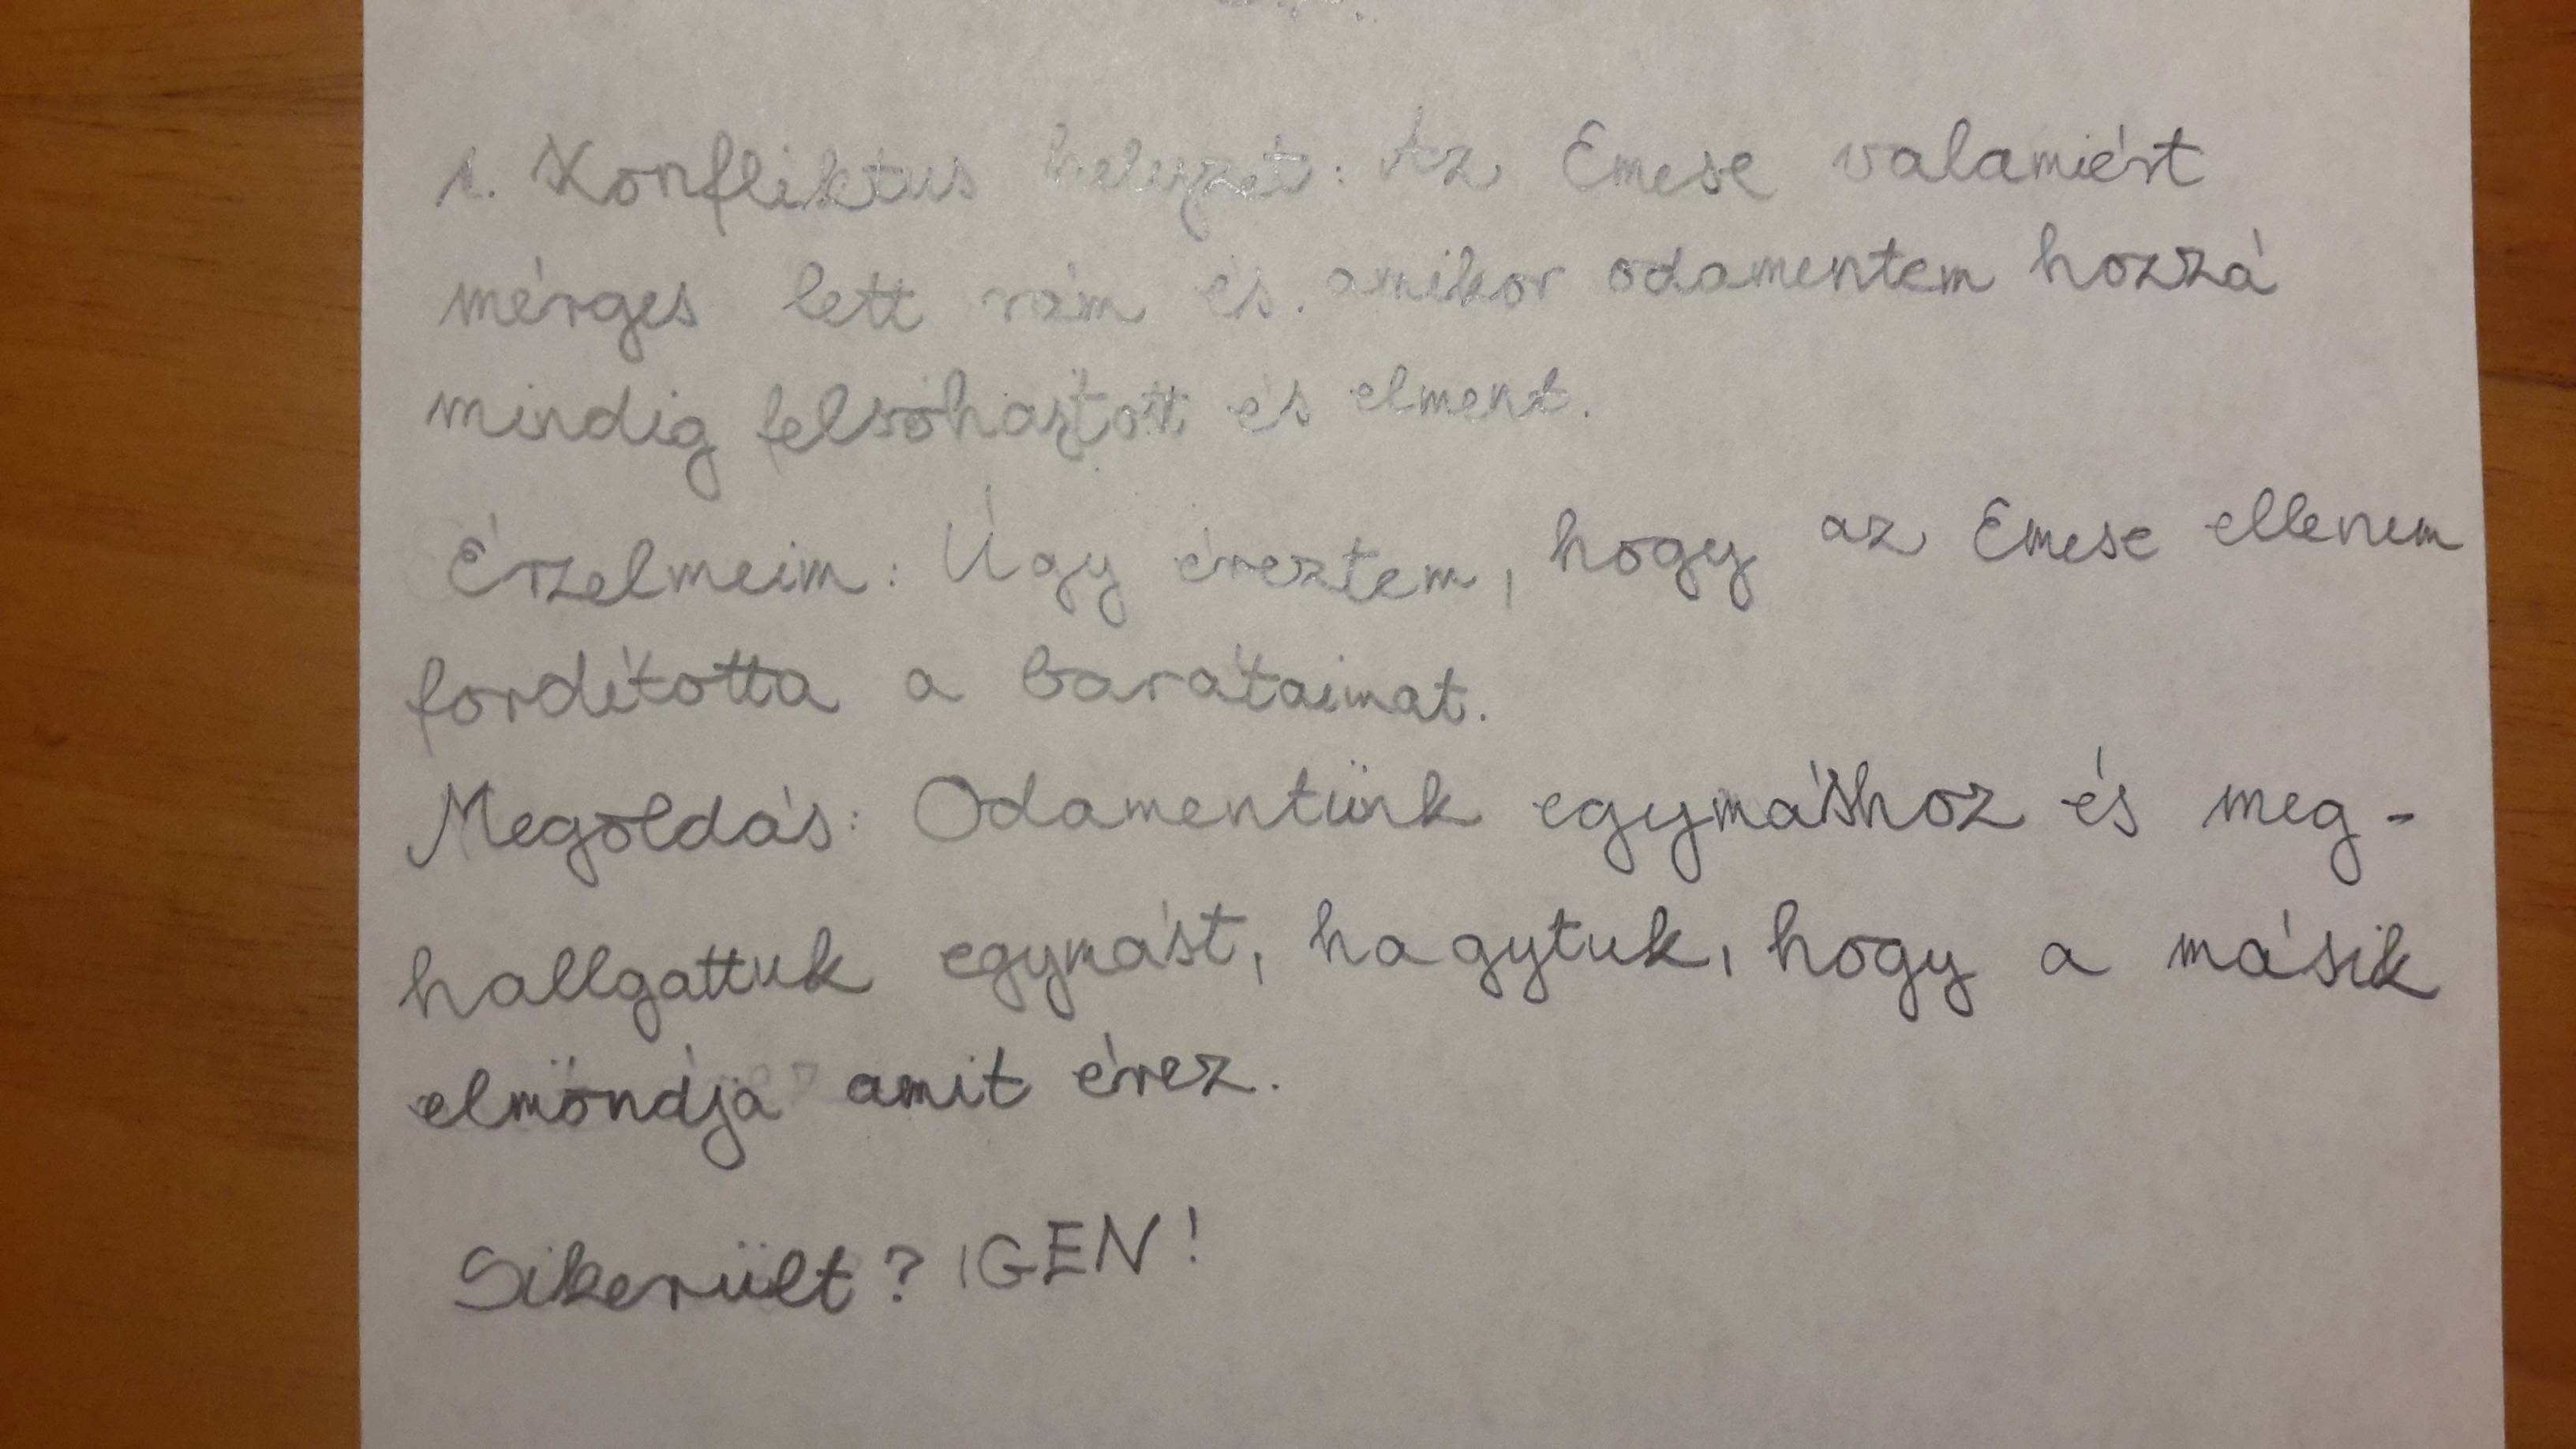 1. Konfliktus helyzet: Az Emese valamiért
mérges lett rám és. amikor odamentem hozzá
mindig felsóhajtott és elment.
Érzelmeim: Úgy éreztem, hogy az Emese ellenem
fordította a barátaimat.
Megoldás: Odamentünk egymáshoz és meg-
hallgattuk egymást, hagytuk, hogy a másik
elmöndja amit érez.
Sikerült? IGEN!